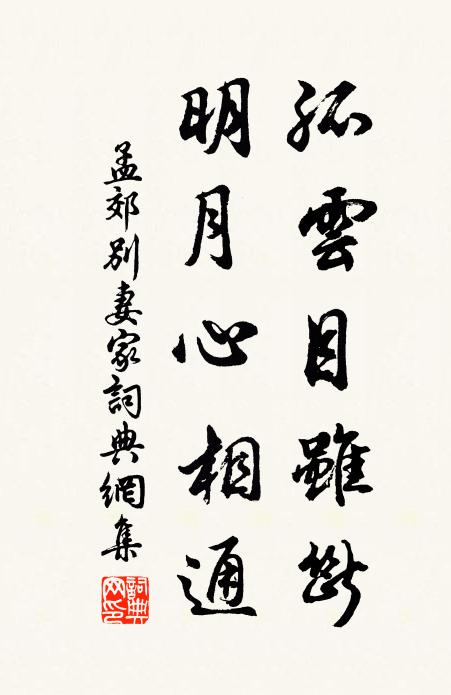 孤雲目雖斷
明月心相通
孟郊別妻家詞典網集
詞典網印